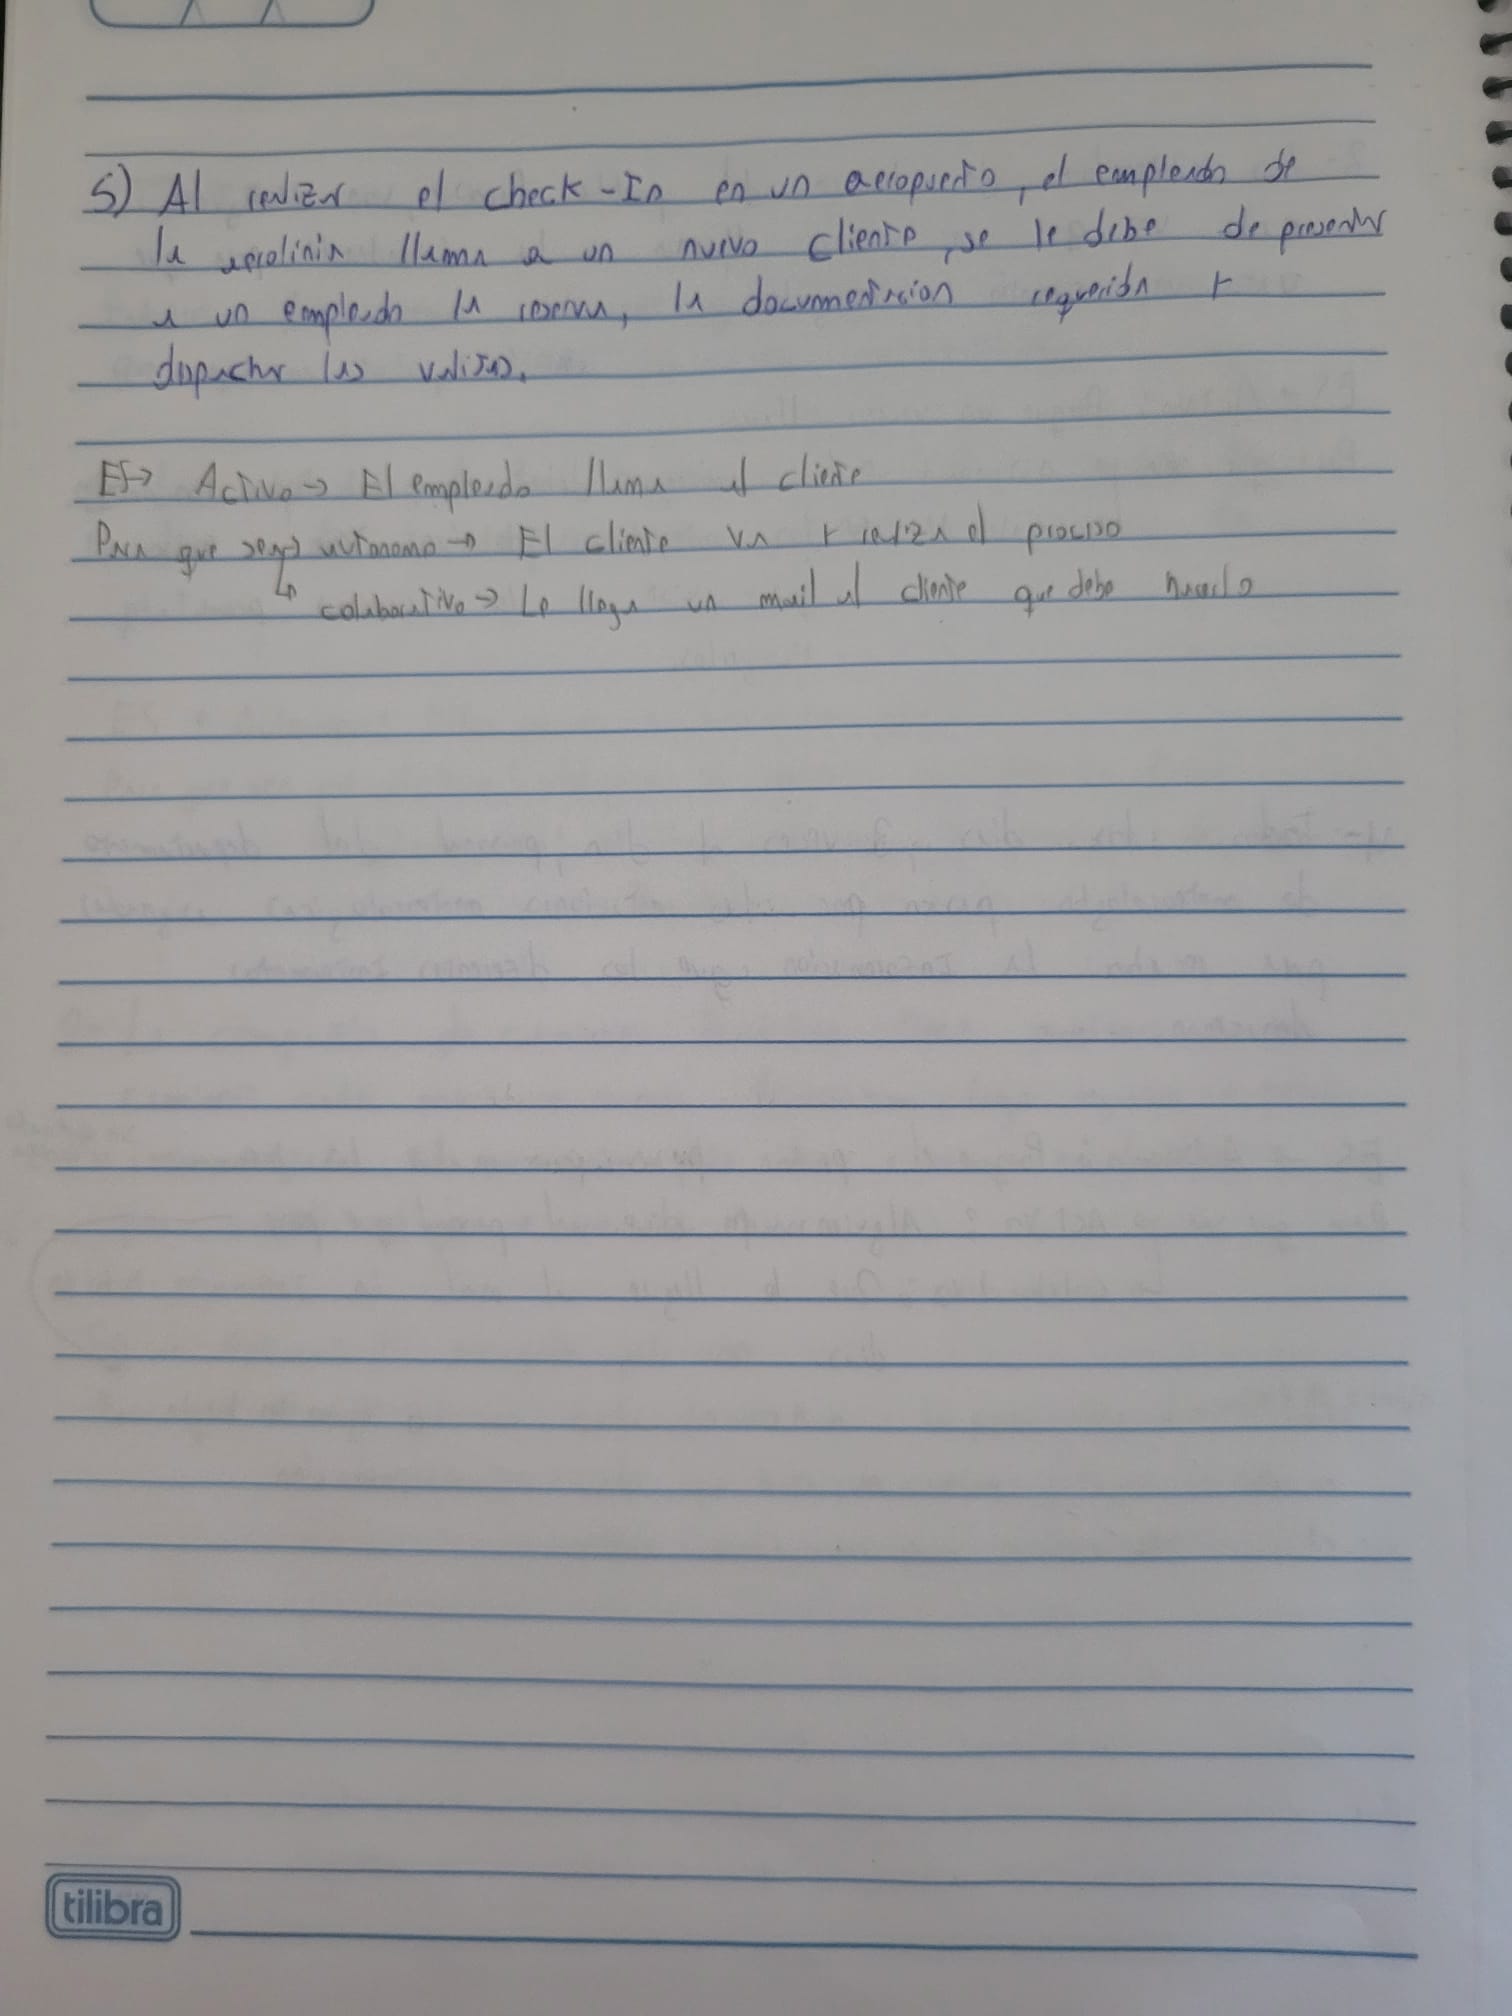 5) Al realizar el check-In en un aeropuerto, el empleado de
la aerolinia llama a un nuevo cliente, se le debe de presentar
a un empleado la reserva, la documentacion requerida y
dispachar las valijas.
ES→ Activo→ El empleado llama al cliente
Para que sea → autonomo → El cliente va y realiza el proceso
↳ colaborativo → Le llega un mail al cliente que debe hacerlo
tilibra